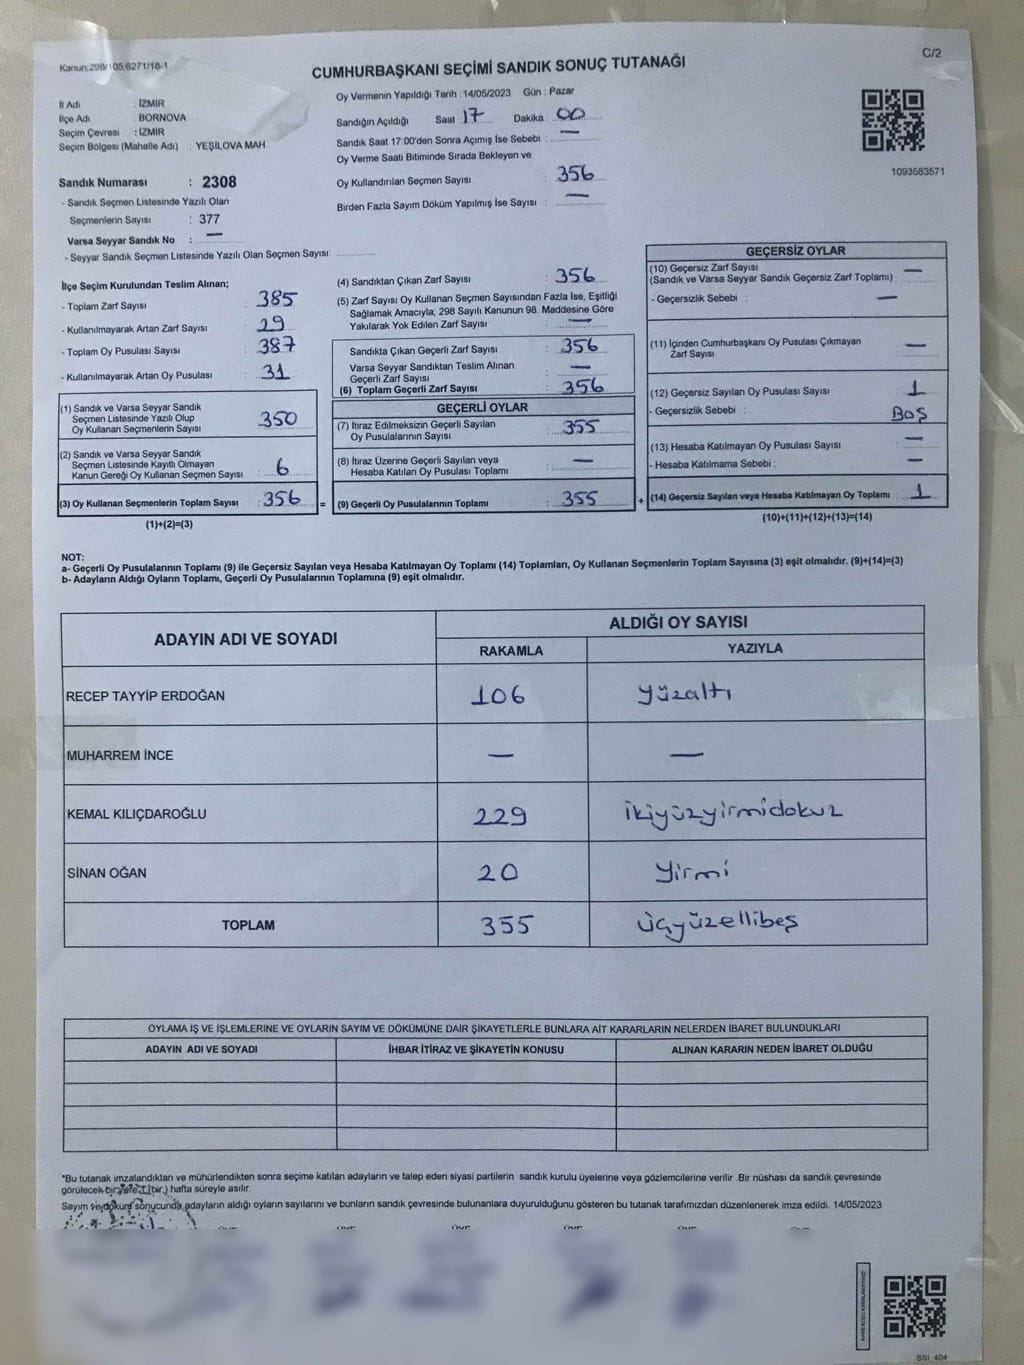 Kanun:298/105,6271/18-1
C/2
CUMHURBAŞKANI SEÇİMİ SANDIK SONUÇ TUTANAĞI
İl Adı : İZMİR
İlçe Adı : BORNOVA
Seçim Çevresi : İZMİR
Seçim Bölgesi (Mahalle Adı) : YEŞİLOVA MAH
Sandık Numarası : 2308
- Sandık Seçmen Listesinde Yazılı Olan
Seçmenlerin Sayısı : 377
Varsa Seyyar Sandık No : —
- Seyyar Sandık Seçmen Listesinde Yazılı Olan Seçmen Sayısı:
Oy Vermenin Yapıldığı Tarih : 14/05/2023 Gün : Pazar
Sandığın Açıldığı Saat 17 Dakika : 00
Sandık Saat 17:00'den Sonra Açımış İse Sebebi : —
Oy Verme Saati Bitiminde Sırada Bekleyen ve
Oy Kullandırılan Seçmen Sayısı : 356
Birden Fazla Sayım Döküm Yapılmış İse Sayısı : —
1093583571
İlçe Seçim Kurulundan Teslim Alınan;
- Toplam Zarf Sayısı : 385
- Kullanılmayarak Artan Zarf Sayısı : 29
- Toplam Oy Pusulası Sayısı : 387
- Kullanılmayarak Artan Oy Pusulası : 31
(1) Sandık ve Varsa Seyyar Sandık
Seçmen Listesinde Yazılı Olup
Oy Kullanan Seçmenlerin Sayısı : 350
(2) Sandık ve Varsa Seyyar Sandık
Seçmen Listesinde Kayıtlı Olmayan
Kanun Gereği Oy Kullanan Seçmen Sayısı : 6
(3) Oy Kullanan Seçmenlerin Toplam Sayısı : 356 =
(1)+(2)=(3)
(4) Sandıktan Çıkan Zarf Sayısı : 356
(5) Zarf Sayısı Oy Kullanan Seçmen Sayısından Fazla İse, Eşitliği
Sağlamak Amacıyla; 298 Sayılı Kanunun 98. Maddesine Göre
Yakılarak Yok Edilen Zarf Sayısı : —
Sandıkta Çıkan Geçerli Zarf Sayısı : 356
Varsa Seyyar Sandıktan Teslim Alınan
Geçerli Zarf Sayısı : —
(6) Toplam Geçerli Zarf Sayısı : 356
GEÇERLİ OYLAR
(7) İtiraz Edilmeksizin Geçerli Sayılan
Oy Pusulalarının Sayısı : 355
(8) İtiraz Üzerine Geçerli Sayılan veya
Hesaba Katılan Oy Pusulası Toplamı : —
(9) Geçerli Oy Pusulalarının Toplamı : 355 +
GEÇERSİZ OYLAR
(10) Geçersiz Zarf Sayısı : —
(Sandık ve Varsa Seyyar Sandık Geçersiz Zarf Toplamı)
- Geçersizlik Sebebi : —
(11) İçinden Cumhurbaşkanı Oy Pusulası Çıkmayan
Zarf Sayısı : —
(12) Geçersiz Sayılan Oy Pusulası Sayısı : 1
- Geçersizlik Sebebi : BOŞ
(13) Hesaba Katılmayan Oy Pusulası Sayısı : —
- Hesaba Katılmama Sebebi : —
(14) Geçersiz Sayılan veya Hesaba Katılmayan Oy Toplamı : 1
(10)+(11)+(12)+(13)=(14)
NOT:
a- Geçerli Oy Pusulalarının Toplamı (9) ile Geçersiz Sayılan veya Hesaba Katılmayan Oy Toplamı (14) Toplamları, Oy Kullanan Seçmenlerin Toplam Sayısına (3) eşit olmalıdır. (9)+(14)=(3)
b- Adayların Aldığı Oyların Toplamı, Geçerli Oy Pusulalarının Toplamına (9) eşit olmalıdır.
ADAYIN ADI VE SOYADI
ALDIĞI OY SAYISI
RAKAMLA YAZIYLA
RECEP TAYYİP ERDOĞAN 106 yüzaltı
MUHARREM İNCE — —
KEMAL KILIÇDAROĞLU 229 ikiyüzyirmidokuz
SİNAN OĞAN 20 yirmi
TOPLAM 355 üçyüzellibeş
OYLAMA İŞ VE İŞLEMLERİNE VE OYLARIN SAYIM VE DÖKÜMÜNE DAİR ŞİKAYETLERLE BUNLARA AİT KARARLARIN NELERDEN İBARET BULUNDUKLARI
ADAYIN ADI VE SOYADI İHBAR İTİRAZ VE ŞİKAYETİN KONUSU ALINAN KARARIN NEDEN İBARET OLDUĞU
*Bu tutanak imzalandıktan ve mühürlendikten sonra seçime katılan adayların ve talep eden siyasi partilerin sandık kurulu üyelerine veya gözlemcilerine verilir .Bir nüshası da sandık çevresinde
görülecek bir yere 1 (bir ) hafta süreyle asılır.
Sayım ve döküm sonucunda adayların aldığı oyların sayılarını ve bunların sandık çevresinde bulunanlara duyurulduğunu gösteren bu tutanak tarafımızdan düzenlenerek imza edildi. 14/05/2023
BSI_404